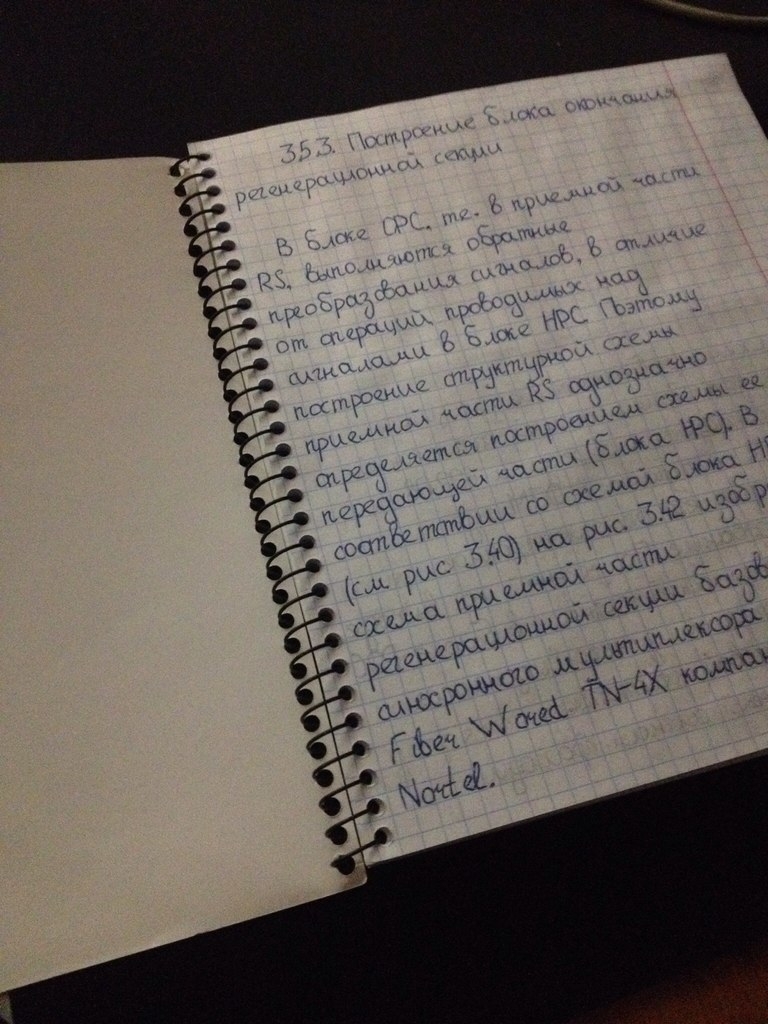 3.5.3. Построение блока окончания
регенерационной секции
В блоке ОРС, т.е. в приемной части
RS, выполняются обратные
преобразования сигналов, в отличие
от операций, проводимых над
сигналами в блоке НРС. Поэтому
построение структурной схемы
приемной части RS однозначно
определяется построением схемы ее
передающей части (блока НРС). В
соответствии со схемой блока
(см. рис 3.40) на рис. 3.42
схема приемной части
регенерационной секции
синхронного мультиплексора
Fiber Wored TN-4X
Nortel.